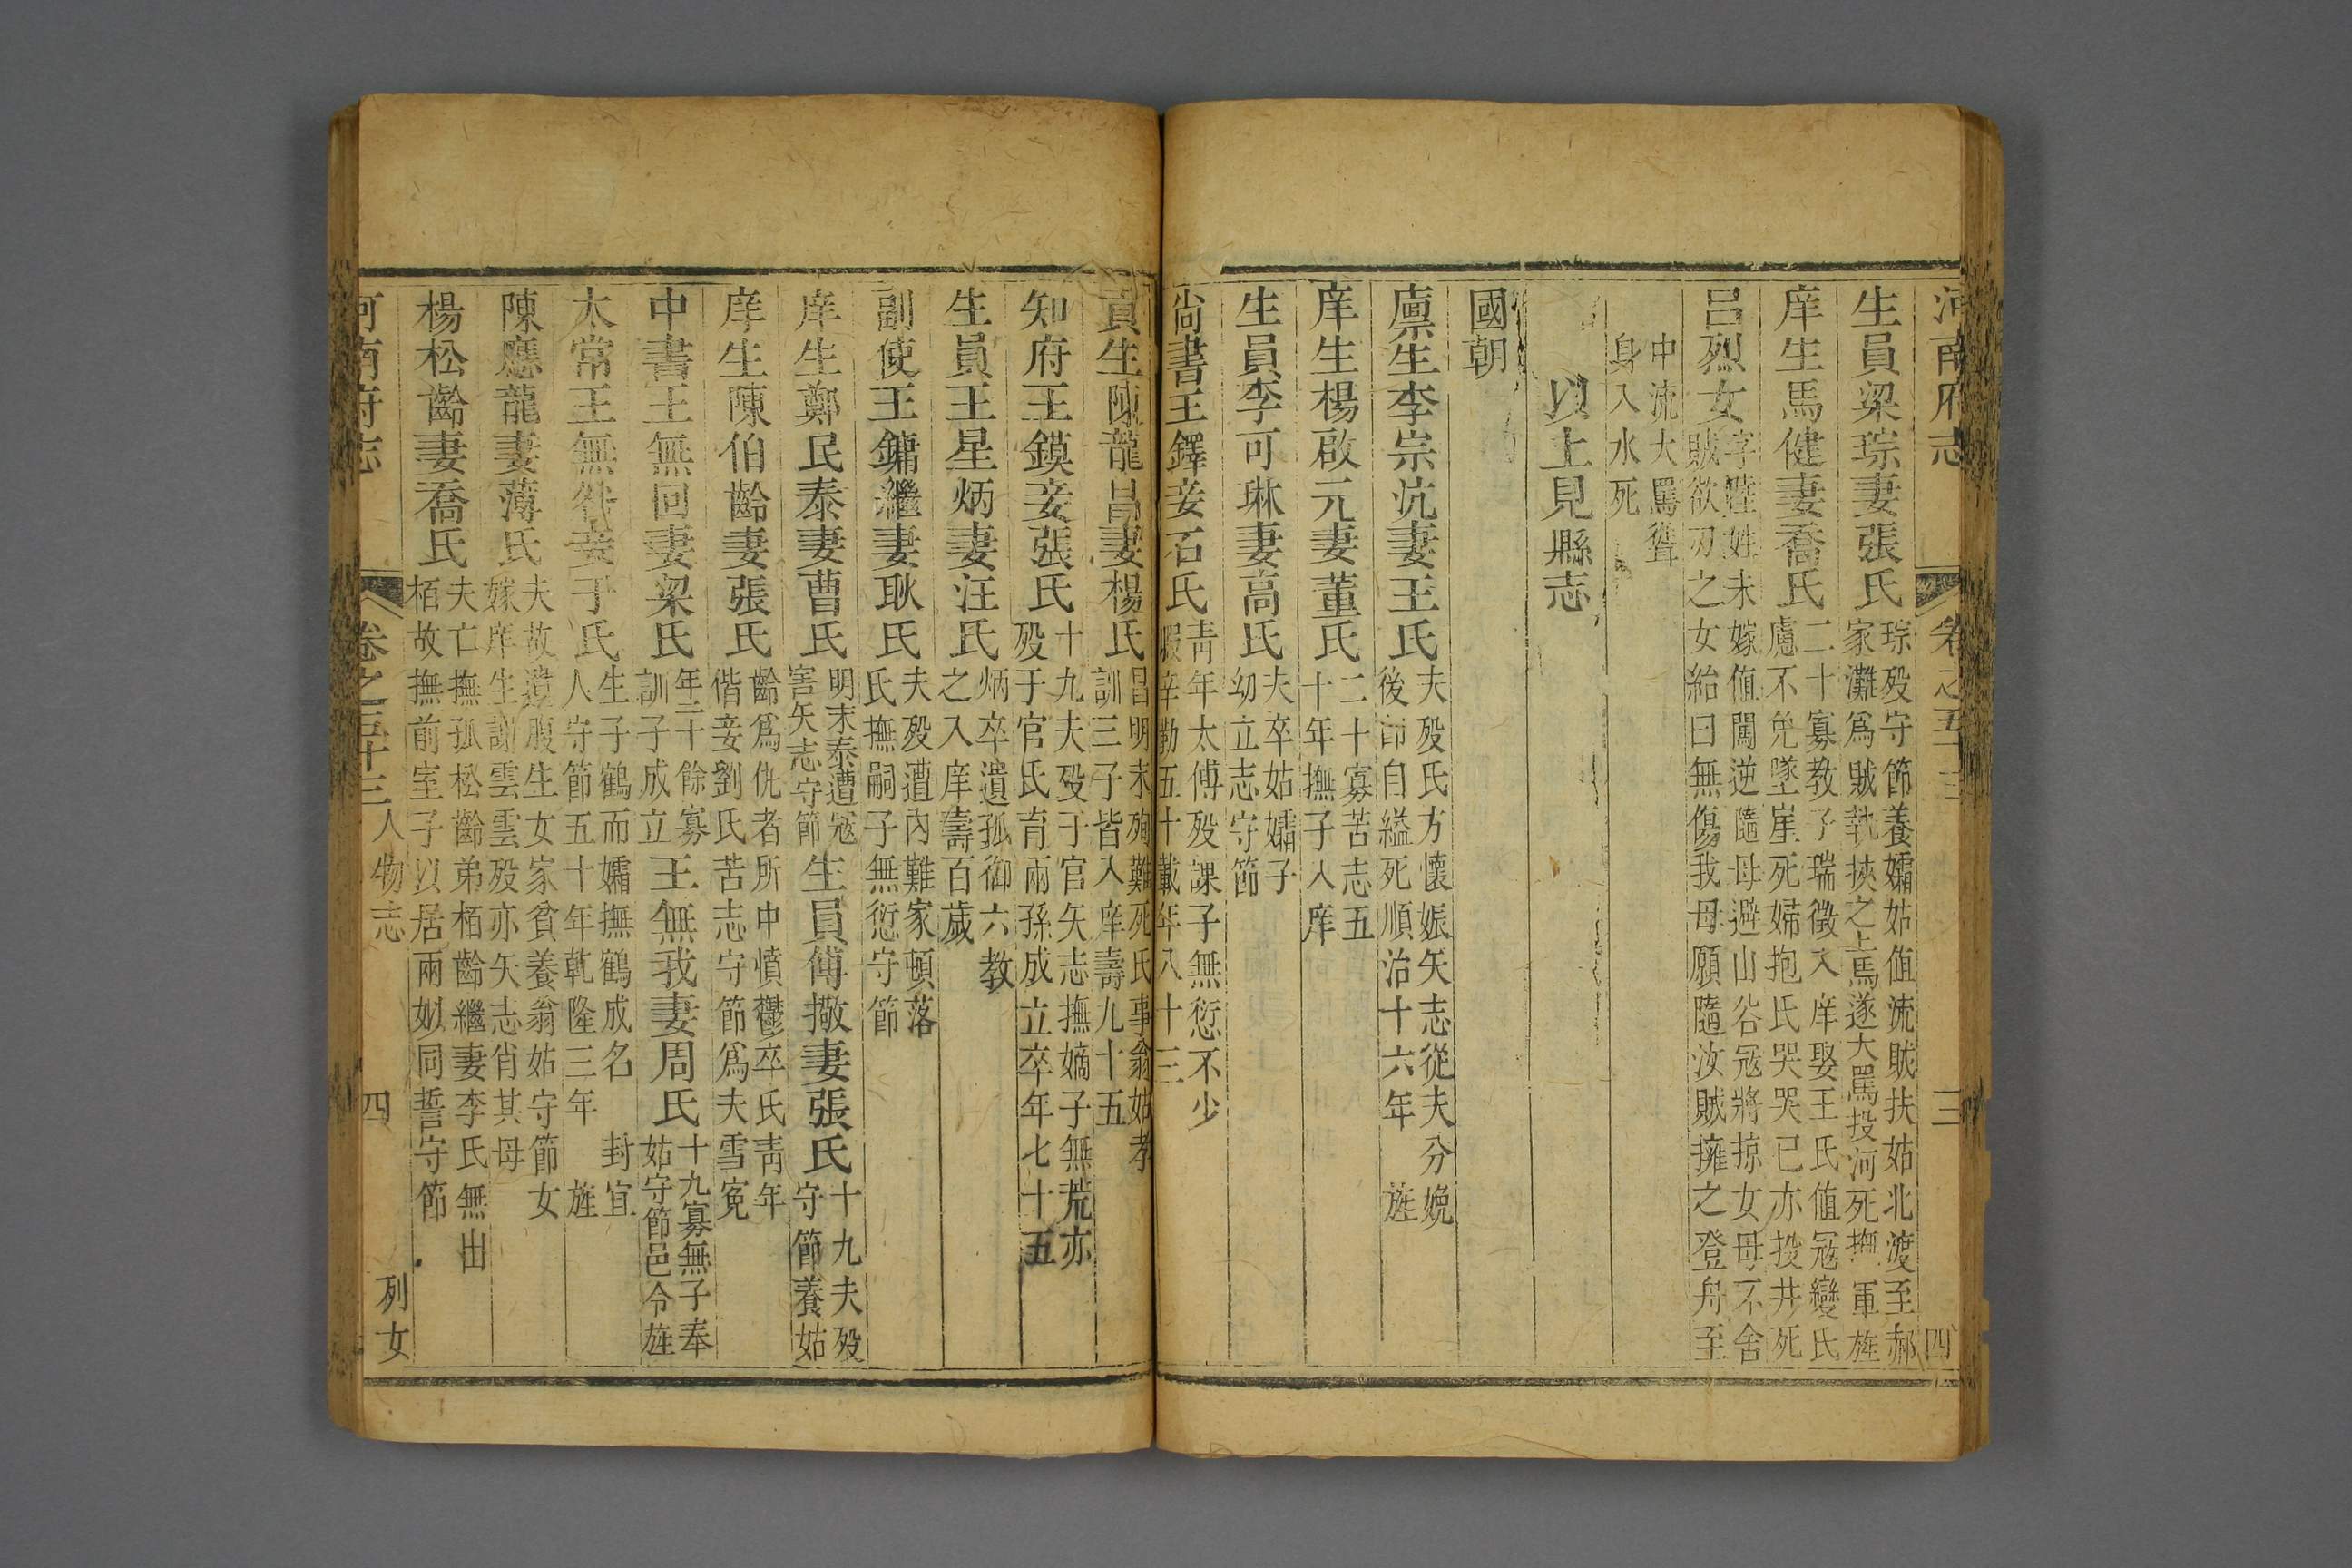 河南府志 卷之五十三 三 四
生員梁琮妻張氏 琮殁守節養孀姑值流賊扶姑北渡至郝
家灘爲賊執挾之上馬遂大罵投河死撫軍旌
庠生馬健妻喬氏 二十寡教子瑞徵入庠娶王氏值冦變氏
慮不免墜崖死婦抱氏哭哭已亦投井死
呂烈女 字陸姓未嫁值闖逆隨母避山谷冦將掠女母不舍
賊欲刃之女紿曰無傷我母願隨汝賊擁之登舟至
中流大罵聳
身入水死
以上見縣志
國朝
廪生李崇沆妻王氏 夫殁氏方懷娠矢志從夫分娩
後卽自縊死順治十六年 旌
庠生楊啟元妻董氏 二十寡苦志五
十年撫子入庠
生員李可琳妻高氏 夫卒姑孀子
幼立志守節
尚書王鐸妾石氏 靑年太傅殁課子無愆不少
暇辛勤五十載年八十三
貢生陳龍昌妻楊氏 昌明末殉難死氏事翁姑孝
訓三子皆入庠壽九十五
知府王鏌妾張氏 十九夫殁于官矢志撫嫡子無荒亦
殁于官氏育兩孫成立卒年七十五
生員王星炳妻汪氏 炳卒遺孤御六教
之入庠壽百歲
副使王鏞繼妻耿氏 夫殁遭內難家頓落
氏撫嗣子無愆守節
庠生鄭民泰妻曹氏 明末泰遭冦
害矢志守節
生員傅撒妻張氏 十九夫殁
守節養姑
庠生陳伯齡妻張氏 齡爲仇者所中憤鬱卒氏靑年
偕妾劉氏苦志守節爲夫雪寃
中書王無回妻梁氏 年二十餘寡
訓子成立
王無我妻周氏 十九寡無子奉
姑守節邑令旌
太常王無咎妾于氏 生子鶴而孀撫鶴成名 封宜
人守節五十年乾隆三年 旌
陳應龍妻薄氏 夫故遺腹生女家貧養翁姑守節女
嫁庠生謝雲雲殁亦矢志肖其母
楊松齡妻喬氏 夫亡撫孤松齡弟栢齡繼妻李氏無出
栢故撫前室子以居兩姒同誓守節
河南府志 卷之五十三 人物志 四 列女